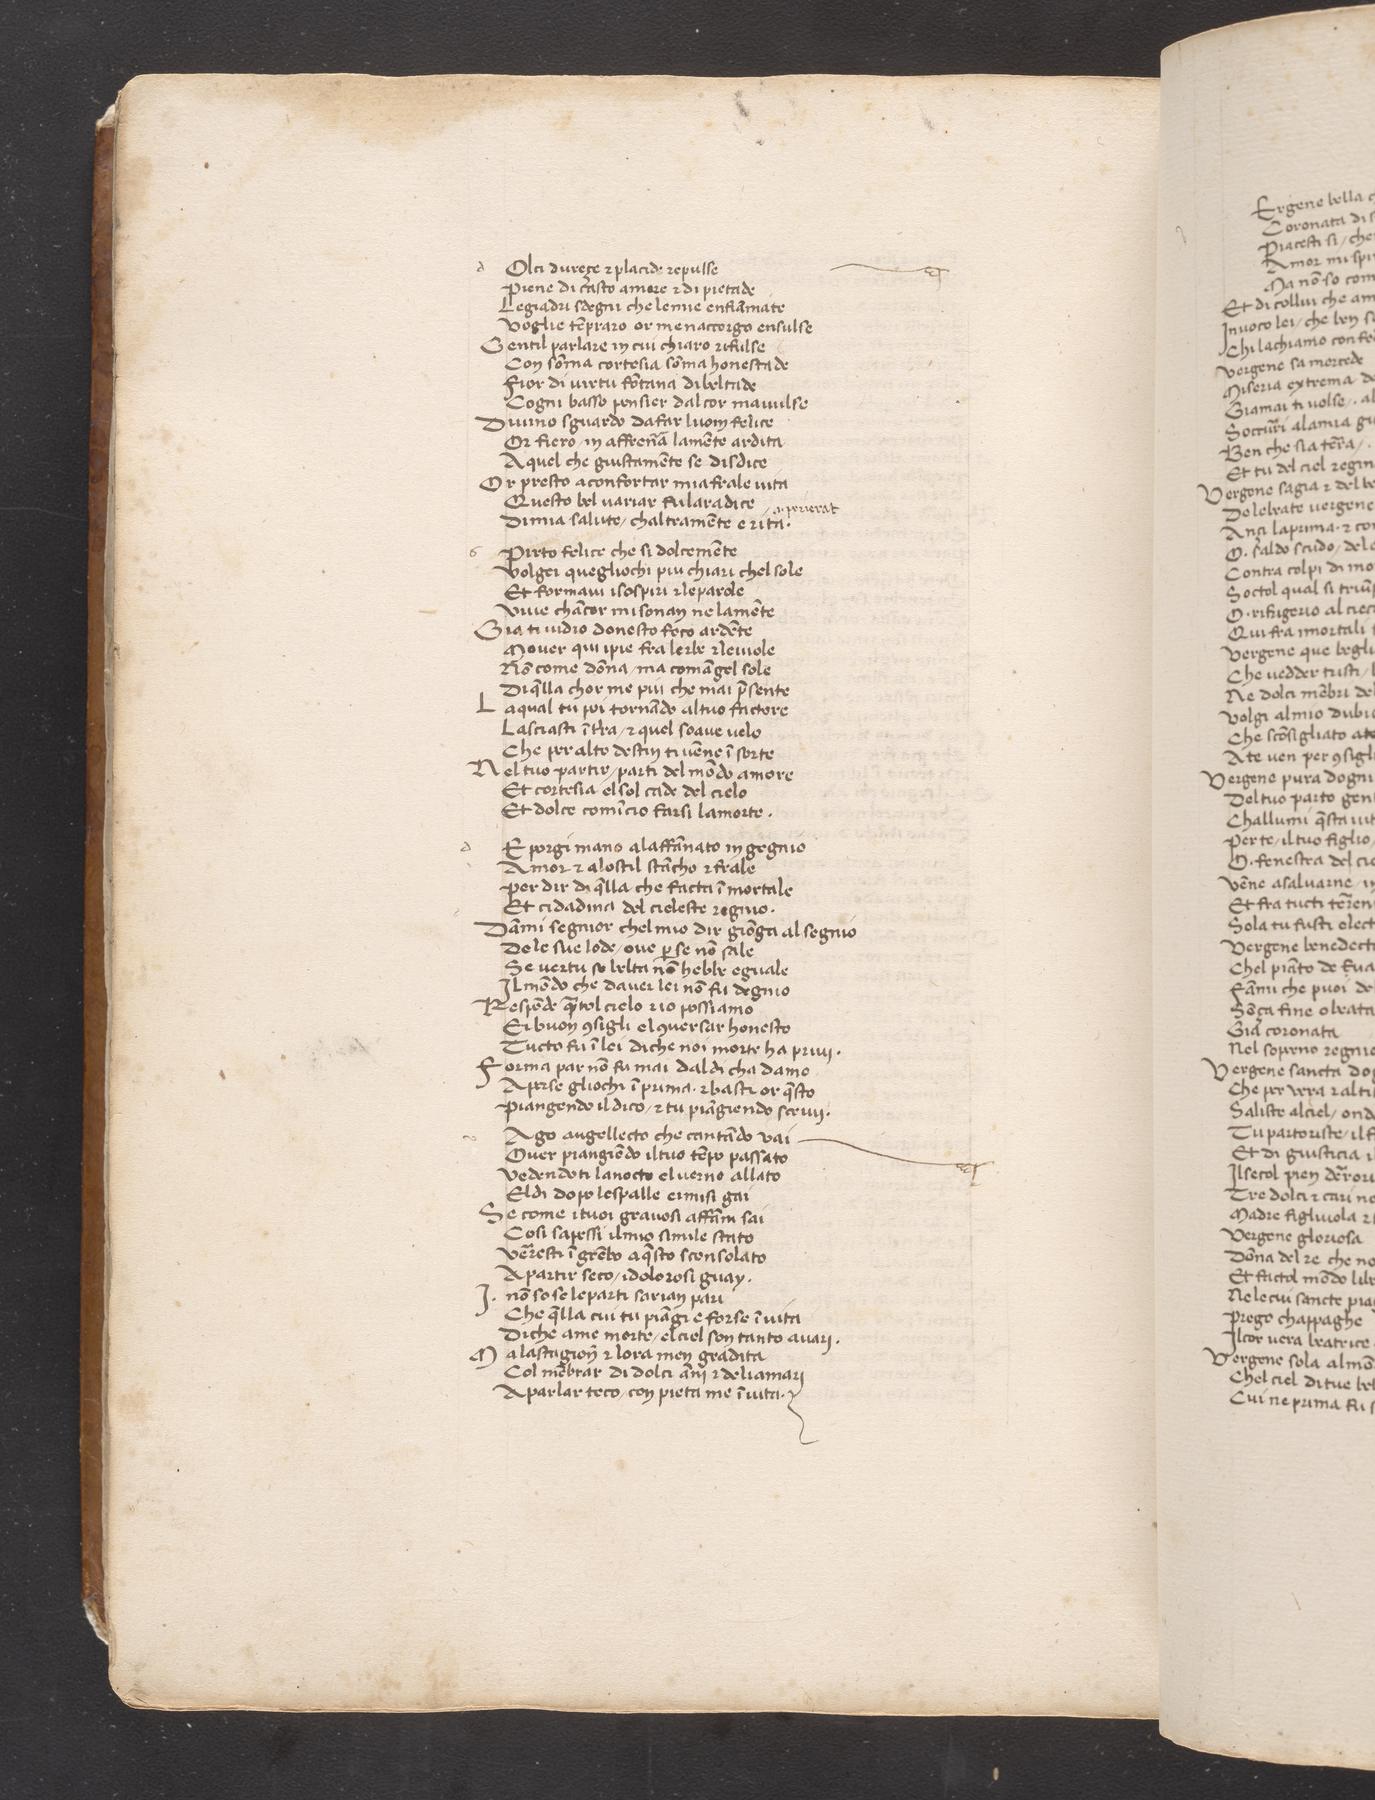 d Olci dureçe ⁊ placide repulse
Piene di casto amore ⁊ di pietade
Legiadri sdegni che lemie enfiãmate
Voglie tẽpraro or menaccorgo ensulse
Gentil parlare in cui chiaro rifulse
Con sõma cortesia sõma honestade
Fior di virtu fõtana dibeltade
Cogni basso pensier dalcor mauulse
Diuino sguardo dafar luom felice
Or fiero / in affrenã lamẽte ardita
Aquel che giustamẽte se disdice
Or presto aconfortar mia frale uita
Questo bel uariar fu laradice
Dimia salute / chaltramẽte e rita.
s Pirto felice che si dolcemẽte
Volgei quegliochi piu chiari chel sole
Et formaui isospiri ⁊ leparole
Viue chãcor mi sonan ne lamẽte
Gia ti uidio donesto foco ardẽte
Mouer qui ipie fra lerbe ⁊ leuiole
Nõ come dõna / ma comãgel sole
Di q̃lla chor me piu che mai p̃sente
Laqual tu poi tornãdo altuo factore
Lasciasti ĩ tr̃a / ⁊ quel soaue uelo
Che per alto destin ti uẽne ĩ sorte
Nel tuo partir / parti del mõdo amore
Et cortesia el sol cade del cielo
Et dolce comĩcio farsi lamorte.
d E porgi mano alaffãnato in gegnio
Amor ⁊ alostil stãcho ⁊ frale
Per dir di q̃lla che facta ĩ mortale
Et cidadina del cieleste regnio.
Dãmi segnior chel mio dir giõga al segnio
De le sue lode / oue ꝑ se nõ sale
Se uertu se belta nõ hebbe eguale
Il mõdo che dauer lei nõ fu degnio
Respõde q̃tol cielo ⁊ io possiamo
Ei buon ꝯsigli el ꝯuersar honesto
Tucto fu ĩ lei diche noi morte ha priui.
Forma par nõ fu mai daldi cha damo
Aperse gliochi ĩ prima. ⁊ basti or q̃sto
Piangendo il dico / ⁊ tu piãgiendo scriui.
v Ago augellecto che cantãdo vai
Ouer piangiẽdo il tuo tẽpo passato
Vedendoti lanocte eluerno allato
El di dopo lespalle ei misi gai
Se come ituoi grauosi affãni sai
Cosi sapessi il mio simile stato
Verresti ĩ grẽbo a q̃sto sconsolato
A partir seco / idolorosi guay.
I. non so se leparti sarian pari
Che q̃lla cui tu piãgi e forse ĩ uita
Diche ame morte / el ciel son tanto auari.
Ma lastagion ⁊ lora men gradita
Col mẽbrar di dolci anni ⁊ deliamari
A parlar teco / con pieta me ĩ uita.
Ergene bella
Coronata di
Piacesti si / che
Amor mi spi
Ma nõ so com
Et di collui che am
Inuoco lei / che ben
Chi lachiamo con fe
Vergene sa mercede
Miseria extrema
Giamai ti uolse /
Soccurri alamia
Ben che sia terra /
Et tu del ciel regin
Vergene sagia ⁊ del
De le beate uergene
Anci laprima. ⁊
O. saldo scudo / de
Contra colpi di
Soctol qual si
O. rifrigerio al
Qui fra mortali
Vergene que
Che uedder tristi /
Ne dolci mẽbri
Volgi almio
Che scõsigliato ate
A te ven per ꝯsigl
Vergene pura dogni
Del tuo parto
Challumi q̃sta
Per te / il tuo figlio
O. fenestra del
Vẽne asaluarne
Et fra tucti
Sola tu fusti
Vergene benedect
Chel piãto de Eua
Fãmi che puoi
Sẽça fine o beata
Gia coronata
Nel soperno regnio
Vergene sancta
Che per vera ⁊
Saliste al ciel / ond
Tu partoriste / il
Et di giusticia
Il secol pien
Tre dolci ⁊ cari
Madre figliuola ⁊
Vergene gloriosa
Dõna del re che no
Et factol mõdo
Ne le cui sancte
Prego chappaghe
Il cor uera beatrice
Vergene sola al mõ
Chel ciel di tue
Cui ne prima fu